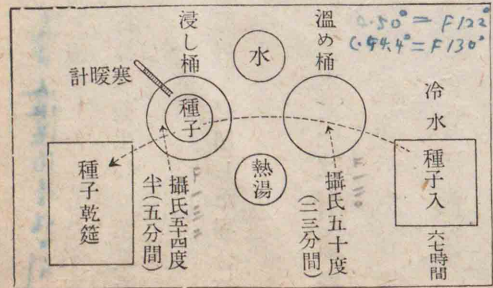 C.50°=F122°
C.54.4°=F130°
冷水
種子入
六七時間
溫め桶
攝氏五十度
(二三分間)
水
熱湯
浸し桶
種子
寒暖計
攝氏五十四度
半(五分間)
種子乾筵